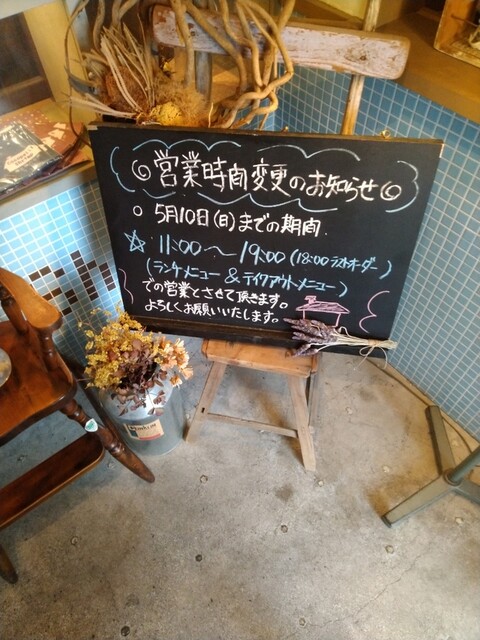 営業時間変更のお知らせ
○ 5月10日(日)までの期間
☆ 11:00〜19:00 (18:00 ラストオーダー)
(ランチメニュー & テイクアウトメニュー)
での営業とさせて頂きます。
よろしくお願いいたします。